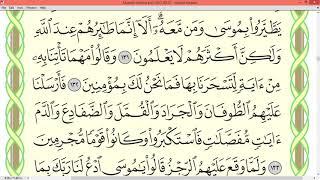 يَطَّيَّرُوا۟ بِمُوسَىٰ وَمَن مَّعَهُۥٓ ۗ أَلَآ إِنَّمَا طَـٰٓئِرُهُمْ عِندَ ٱللَّهِ
وَلَـٰكِنَّ أَكْثَرَهُمْ لَا يَعْلَمُونَ ١٣١ وَقَالُوا۟ مَهْمَا تَأْتِنَا بِهِۦ
مِنْ ءَايَةٍ لِّتَسْحَرَنَا بِهَا فَمَا نَحْنُ لَكَ بِمُؤْمِنِينَ ١٣٢ فَأَرْسَلْنَا
عَلَيْهِمُ ٱلطُّوفَانَ وَٱلْجَرَادَ وَٱلْقُمَّلَ وَٱلضَّفَادِعَ وَٱلدَّمَ
ءَايَـٰتٍ مُّفَصَّلَـٰتٍ فَٱسْتَكْبَرُوا۟ وَكَانُوا۟ قَوْمًا مُّجْرِمِينَ ١٣٣
وَلَمَّا وَقَعَ عَلَيْهِمُ ٱلرِّجْزُ قَالُوا۟ يَـٰمُوسَى ٱدْعُ لَنَا رَبَّكَ بِمَا